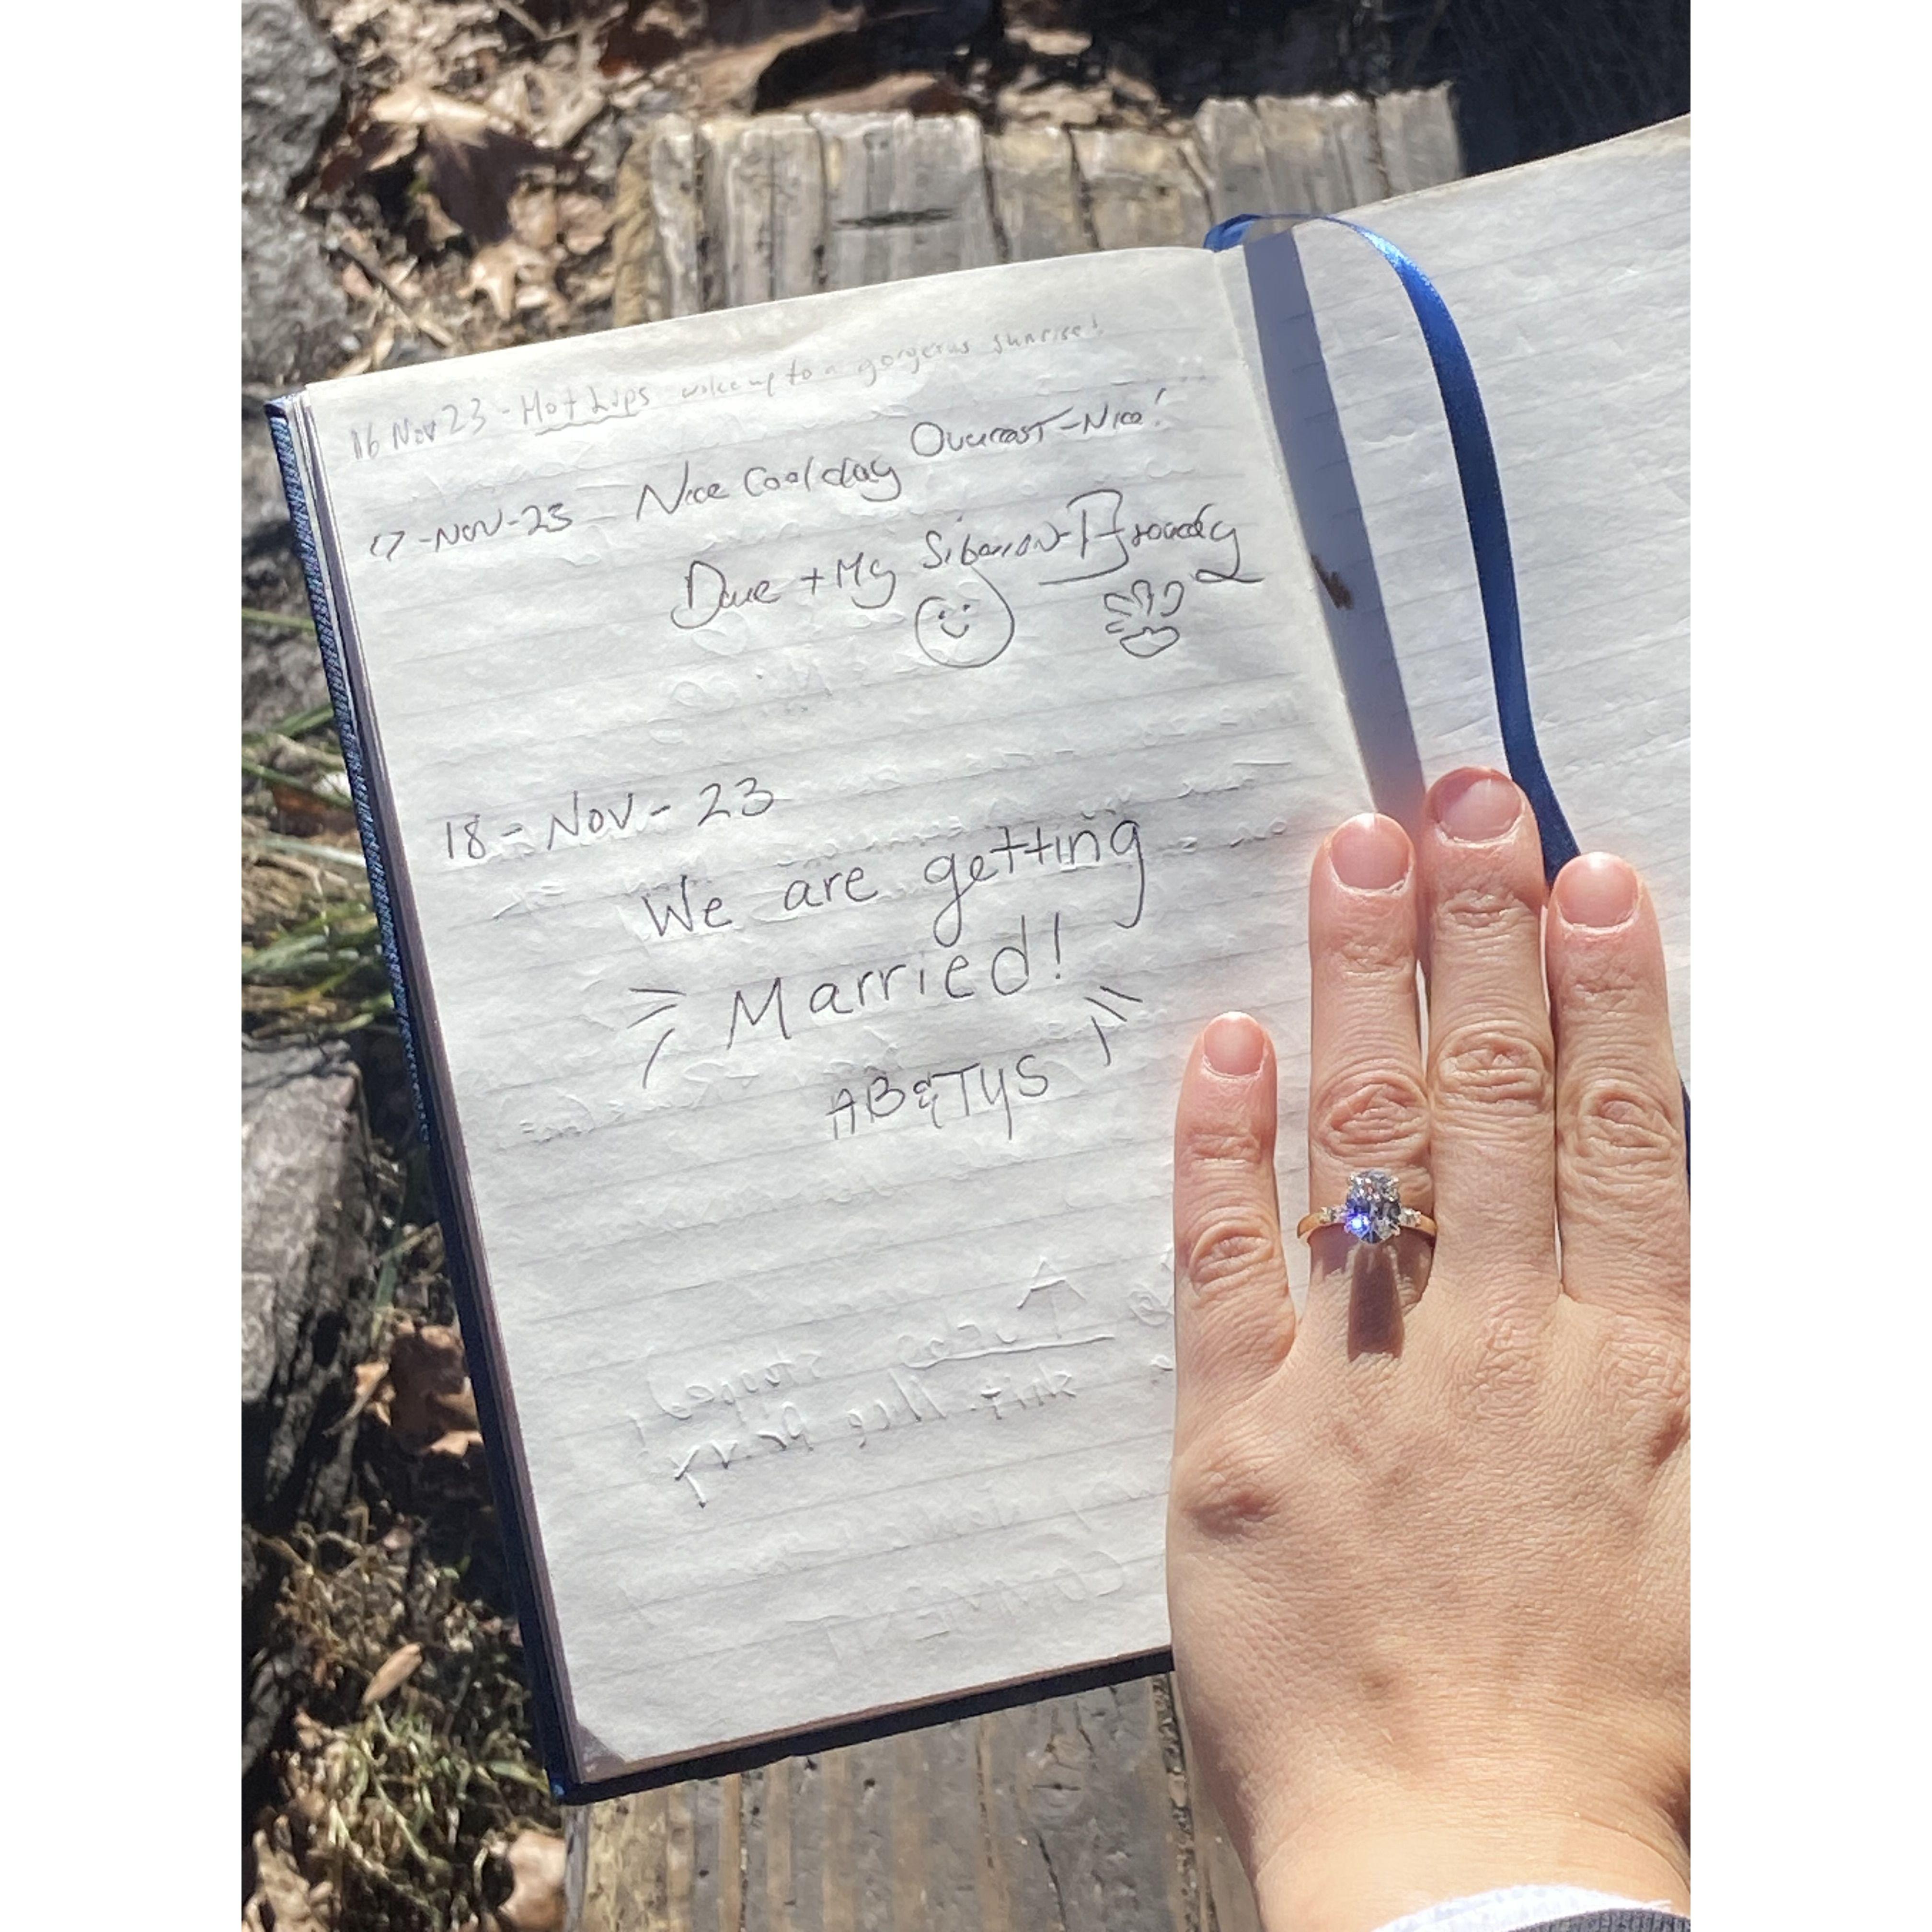 16 Nov 23 - Hot Lips woke up to a gorgeous sunrise!
17-NOV-23 Nice Cool day Overcast-Nice!
Dave + My Siberian-Brandy
18-Nov-23
We are getting
Married!
AB&TYS